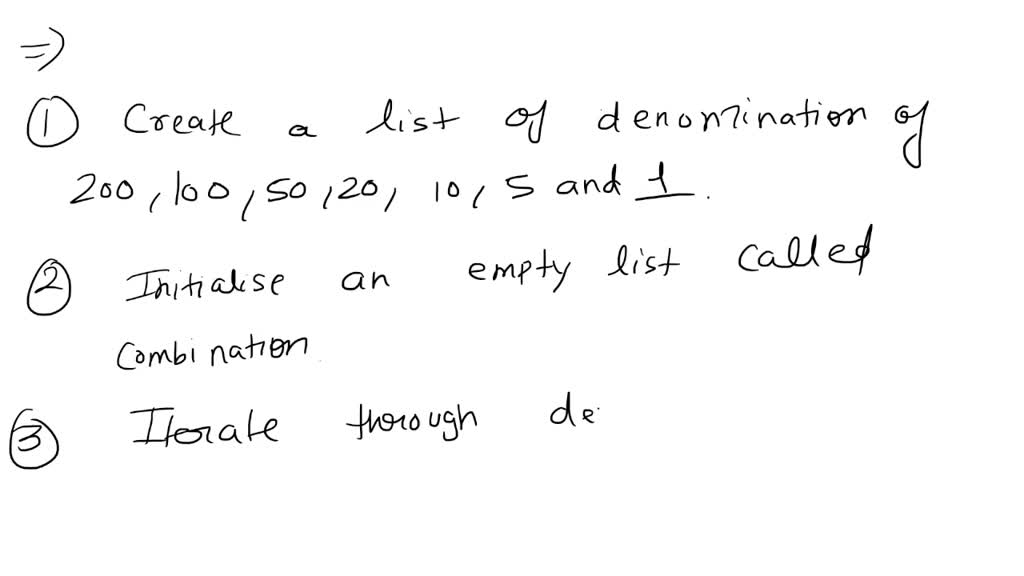 ⇒
① Create a list of denomination of
200, 100, 50, 20, 10, 5 and 1.
② Initialise an empty list called
combination
③ Iterate thorough de